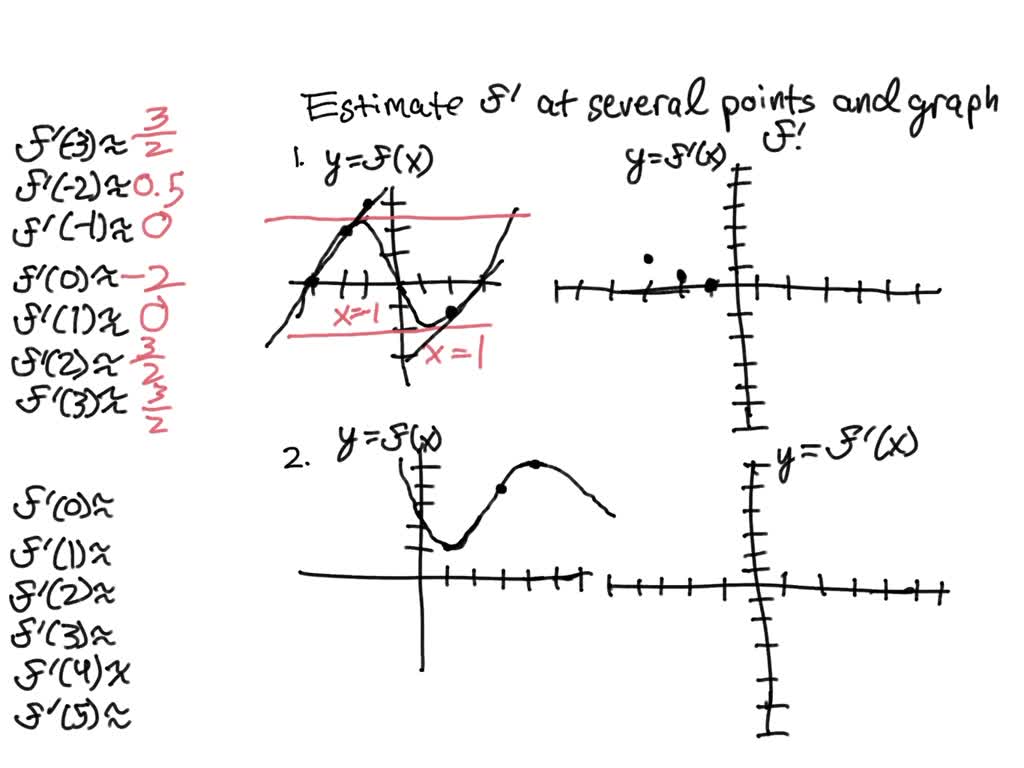 Estimate f' at several points and graph
f'.
f'(-3)≈ 3/2
f'(-2)≈ 0.5
f'(-1)≈ 0
f'(0)≈ -2
f'(1)≈ 0
f'(2)≈ 3/2
f'(3)≈ 3/2
1. y=f(x)
y=f'(x)
x=-1
x=1
2. y=f(x)
y=f'(x)
f'(0)≈
f'(1)≈
f'(2)≈
f'(3)≈
f'(4)≈
f'(5)≈